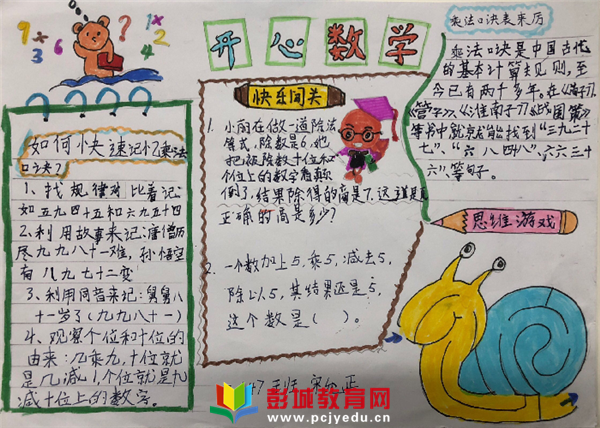 9 × 3 6
1 × 2 4
开心数学
如何快速记忆乘法
口诀?
1、找规律对比着记:
如五九四十五和六九五十四
2、利用故事来记:唐僧历
尽九九八十一难,孙悟空
有八九七十二变
3、利用同音来记:舅舅八
十一岁了(九九八十一)
4、观察个位和十位的
由来:几乘九,十位就
是几减1,个位就是九
减十位上的数字。
快乐闯关
1. 小雨在做一道除法
等式,除数是6,她
把被除数十位和
个位上的数字看颠
倒了,结果除得的商是7,这道题
正确的商是多少?
2. 一个数加上5,乘5,减去5,
除以5,其结果还是5,
这个数是( )。
乘法口诀表来历
乘法口诀是中国古代
的基本计算规则,至
今已有两千多年。在《荀子》
《管子》、《淮南子》《战国策》
等书中就能找到“三九二十
七”、“六八四八”、六六三十
六”等句子。
思维游戏
彭城教育网
www.pcjyedu.cn